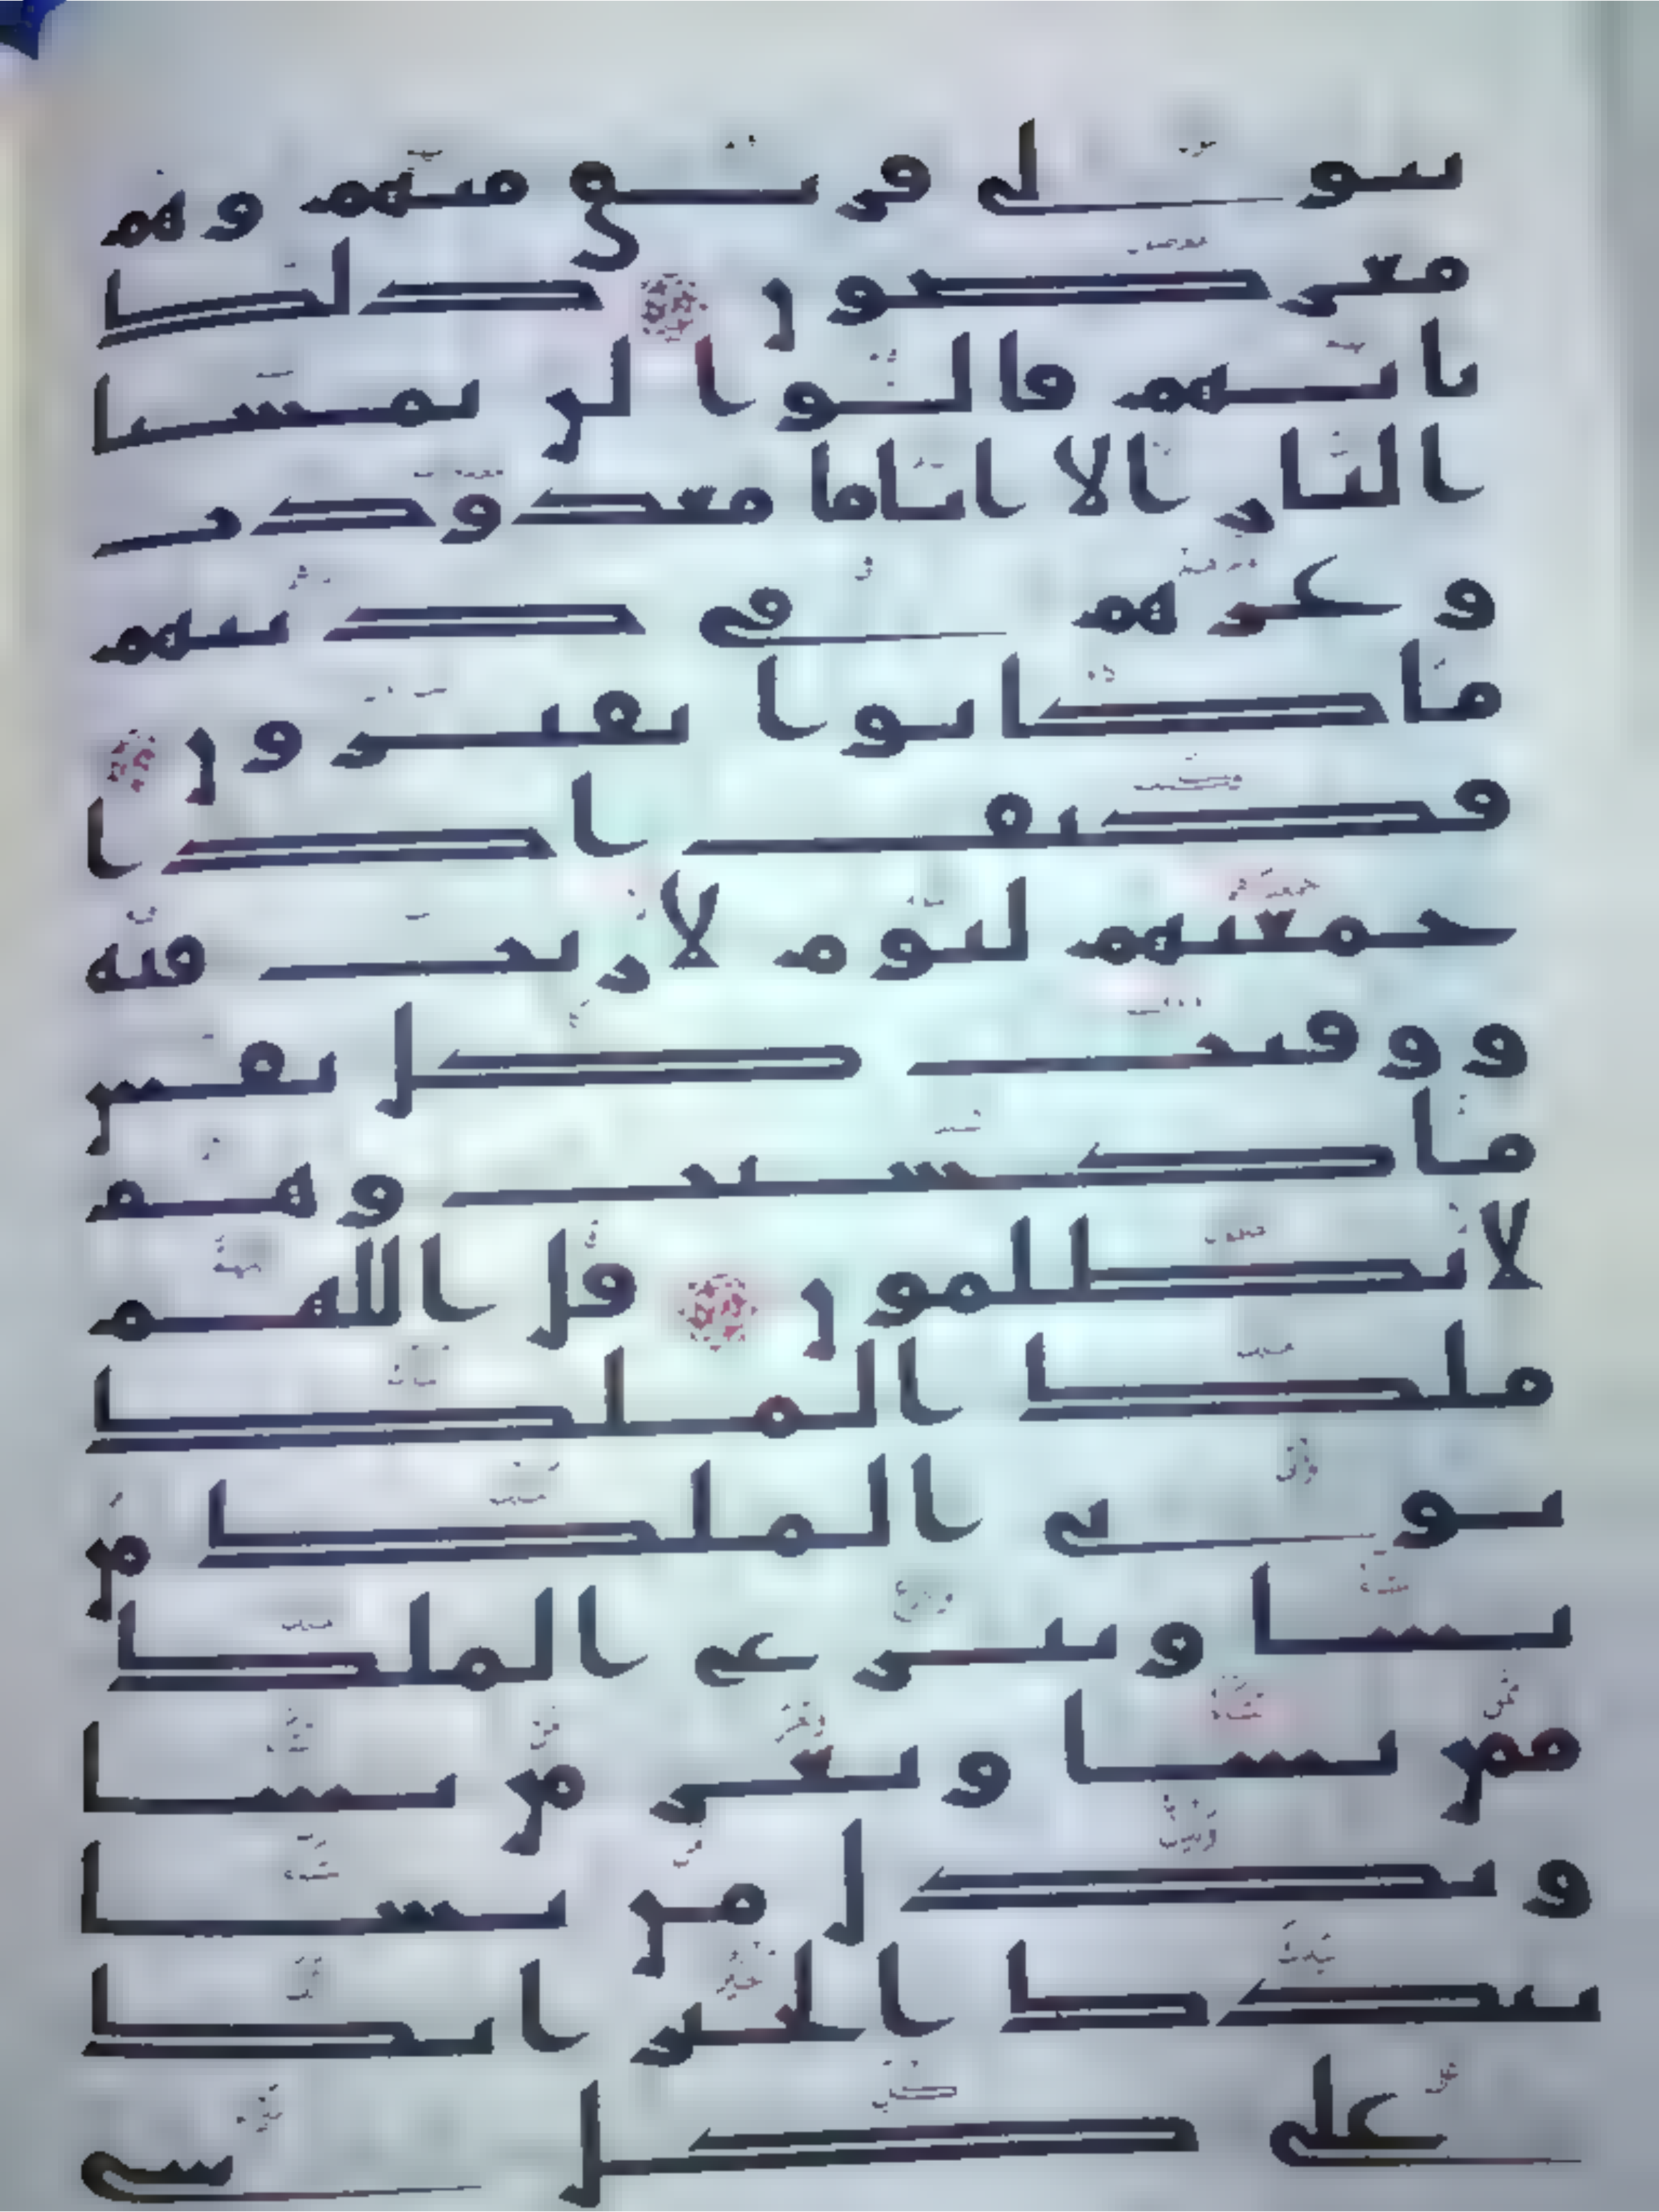 يتولى فريق منهم وهم
معرضون ذلك
بانهم قالوا لن تمسنا
النار الا اياما معدودت
وغرهم في دينهم
ما كانوا يفترون
فكيف اذا
جمعنهم ليوم لا ريب فيه
ووفيت كل نفس
ما كسبت وهم
لا يظلمون قل اللهم
ملك الملك
توتي الملك من
تشا وتنزع الملك
ممن تشا وتعز من تشا
وتذل من تشا
بيدك الخير انك
على كل شي